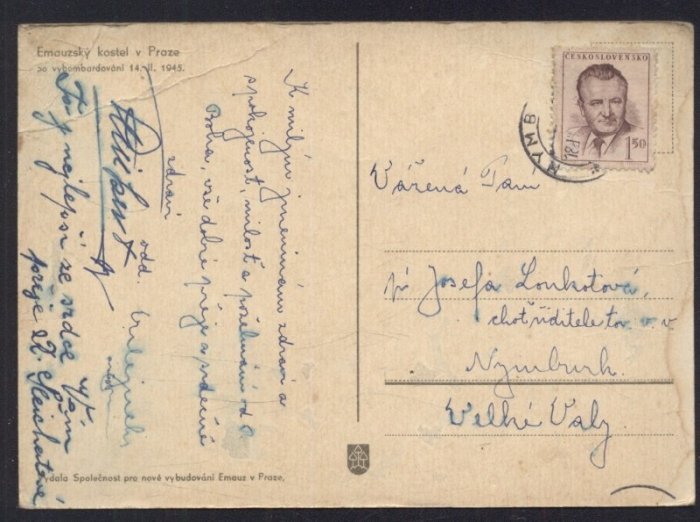 Emauzský kostel v Praze
po vybombardování 14. II. 1945.
K milým jmeninám zdraví a
spokojenost, milost a požehnání od
Boha, vše dobré přeje a srdečně
zdraví
odd.
To nejlepší ze srdce Vám
přeje
Vydala Společnost pro nové vybudování Emauz v Praze,
ČESKOSLOVENSKO
1.50
NYMB
Vážená Paní
pí Josefa Loukotová,
choť ředitele tov. v. v.
Nymburk.
Velké Valy